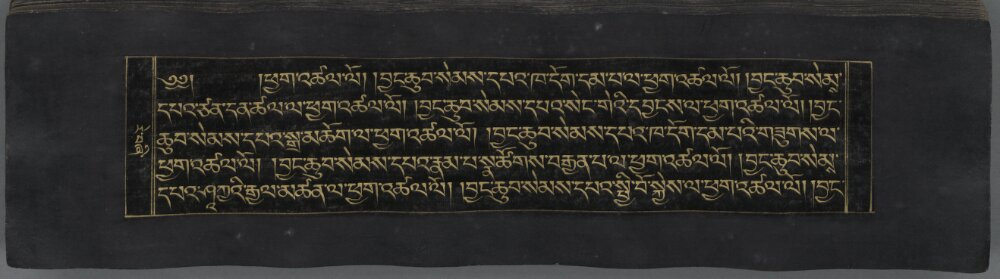 ༄༅། །ཕྱག་འཚལ་ལོ། །བྱང་ཆུབ་སེམས་དཔའ་ཁ་དོག་དམ་པ་ལ་ཕྱག་འཚལ་ལོ། །བྱང་ཆུབ་སེམྶ་
དཔའ་ཙན་དན་ཚལ་ལ་ཕྱག་འཚལ་ལོ། །བྱང་ཆུབ་སེམས་དཔའ་སེང་གེའི་དབྱངས་ལ་ཕྱག་འཚལ་ལོ། །བྱང་
ཆུབ་སེམས་དཔའ་སྒྲ་མཆོག་ལ་ཕྱག་འཚལ་ལོ། །བྱང་ཆུབ་སེམས་དཔའ་ཁ་དོག་དམ་པའི་གཟུགས་ལ་
ཕྱག་འཚལ་ལོ། །བྱང་ཆུབ་སེམས་དཔའ་རྣམ་པ་སྣ་ཚོགས་བརྒྱན་པ་ལ་ཕྱག་འཚལ་ལོ། །བྱང་ཆུབ་སེམྶ་
དཔའ་ཤཱཀྱའི་རྒྱལ་མཚན་ལ་ཕྱག་འཚལ་ལོ། །བྱང་ཆུབ་སེམས་དཔའ་སྤྱི་བོ་སྐྱེས་ལ་ཕྱག་འཚལ་ལོ། །བྱང་